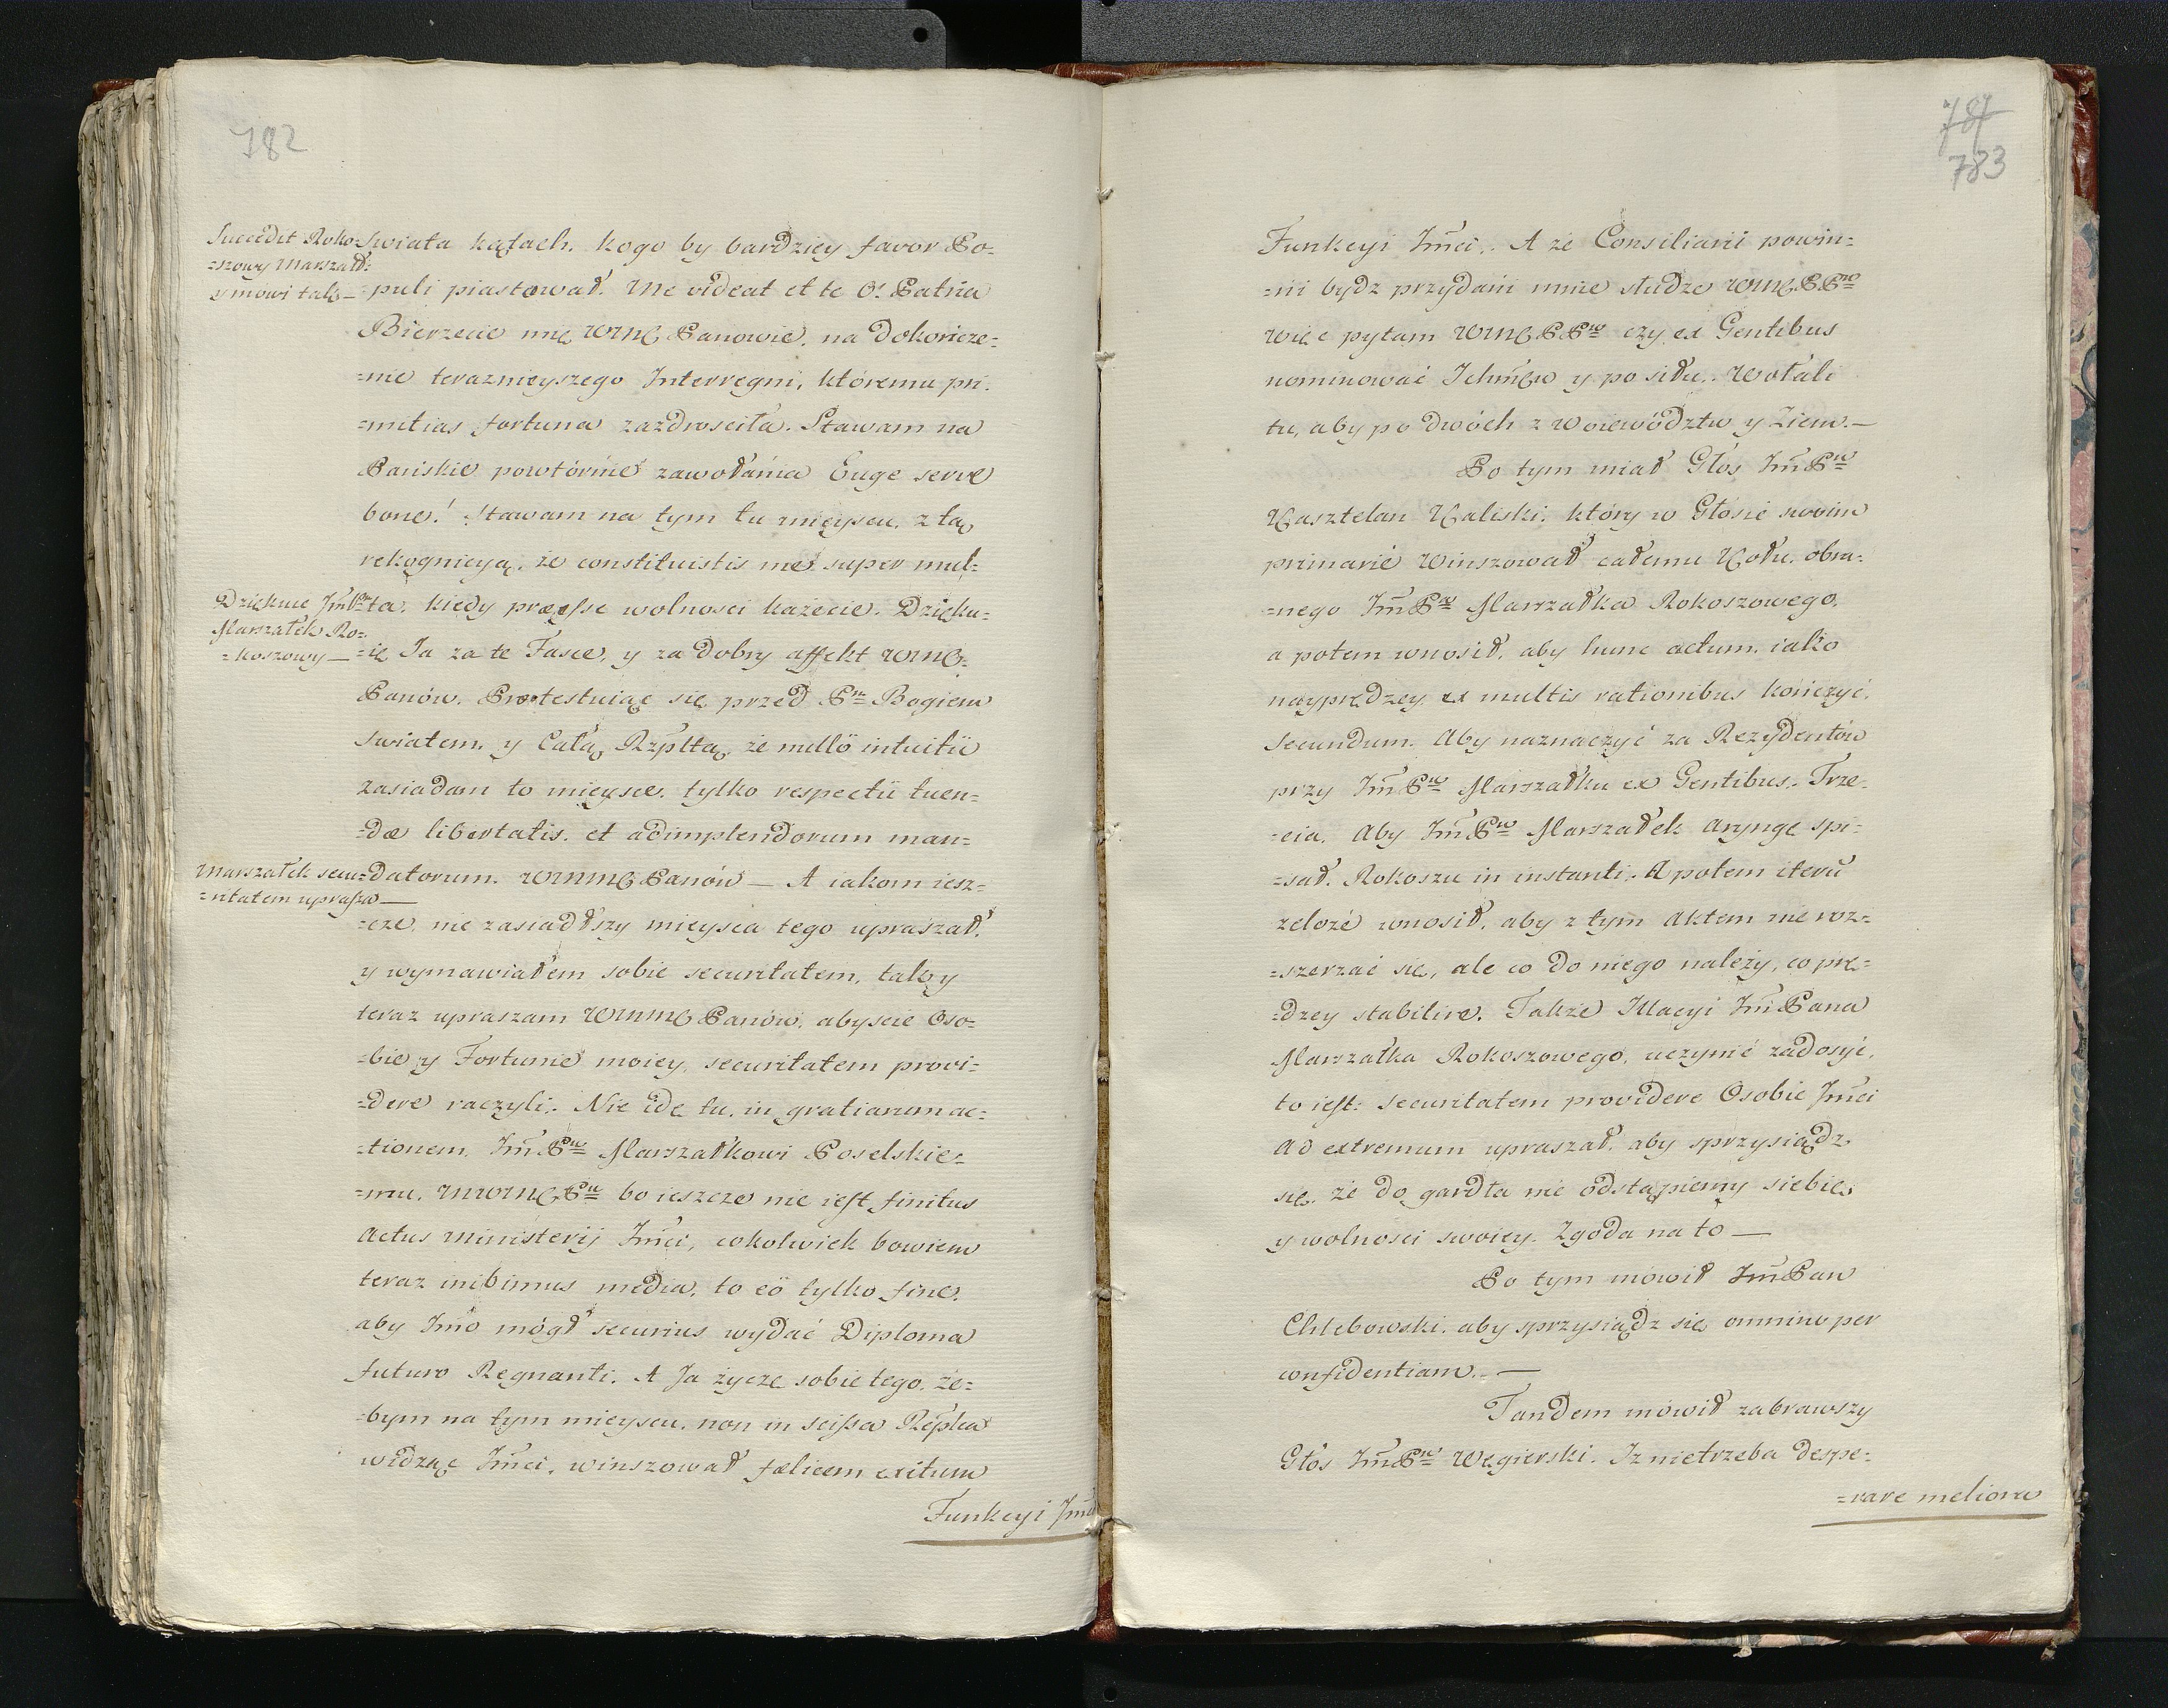 782
Succedit Roko-
=szowy Marszałk:
y mowi tak —
swiata kątach, kogo by bardziey favor Po-
=puli piastował. Me videat et te O! Patria
Bierzecie mię WMC Panowie, na dokoncze=
=nie teraznieyszego Interregni, któremu pri-
=mitias fortuna zazdrosciła. Stawam na
Pańskie powtórne zawołania Euge serve
bone! stawam na tym tu mieyscu, z tą
rekognicyą, że constituistis me super mul=
Dziękuie JmPan
Marszałek Ro=
=koszowy —
ta, kiedy præesse wolnosci każecie. Dzięku=
=ię Ja za te Fasce, y za dobry affekt WMC
Panów. Protestuiąc się przed Pm Bogiem
swiatem, y Całą Rzpltą, że nullö intuitü
zasiadam to mieysce, tylko respectü tuen=
=dæ libertatis, et adimplendorum man=
Marszałek secu=
=ritatem uprasza —
=datorum. WMMC Panów — A iakom iesz=
=cze, nie zasiadłszy mieysca tego upraszał,
y wymawiałem sobie securitatem, tak y
teraz upraszam WMMC Panów, abyscie Oso=
=bie y Fortunie moiey, securitatem provi=
=dere raczyli. Nie idę tu, in gratiarum ac=
=tionem, Jm Pu Marszałkowi Poselskie=
=mu, MWMC Pu bo ieszcze nie iest finitus
Actus ministerij Jmci, cokolwiek bowiem
teraz inibimus media, to eö tylko fine,
aby Jmc mógł securius wydać Diploma
futuro Regnanti. A Ja życzę sobie tego, że=
=bym na tym mieyscu, non in scissa Rеplca
widząc Jmci, winszował fælicem exitum
Funkcyi Jmci
787
783
Funkcyi Jmci. A że Consiliarii powin=
=ni bydz przydani mnie słudze WMC PPne
więc pytam WMC PPw czy ex Gentibus
nominować Ichmciow y po siłu. Wołali
tu, aby po dwóch z Woiewództw y Ziem. —
Po tym miał Głos JmPu
Kasztelan Kaliski, który w Głosie swoim
primarie Winszował całemu Kołu, obra=
=nego JmPu Marszałka Rokoszowego,
a potem wnosił, aby hunc actum, iako
nayprędzey ex multis rationibus kończyć,
secundum. Aby naznaczyć za Rezydentów
przy JmPu Marszałku ex Gentibus. Trze=
=cia, Aby JmPu Marszałek Aryngę spi=
=sał. Rokoszu in instanti. A potem iterũ
zelozé wnosił, aby z tym Aktem nie roz=
=szerzać się, ale co do niego należy, co prę=
=dzey stabilire. Także Illacyi Jm Pana
Marszałka Rokoszowego, uczynić zadosyć,
to iest: securitatem providere Osobie Jmci
Ad extremum upraszał, aby sprzysiądz
się, że do gardła nie odstąpiemy siebie
y wolnosci swoiey. Zgoda na to —
Po tym mówił Jm Pan
Chlebowski, aby sprzysiądz się omnino per
confidentiam. —
Tandem mówił zabrawszy
Głos JmPu Węgierski. Iz nietrzeba despe=
=rare meliora